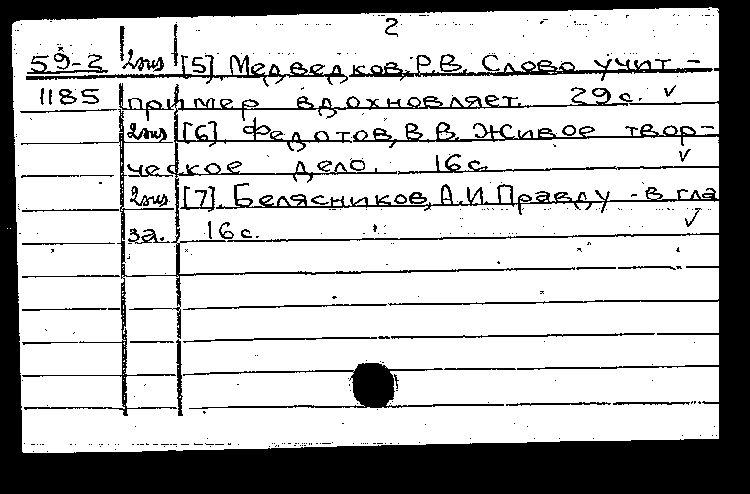 2
59-2 2экз [5]. Медведков, Р.В. Слово учит -
1185 пример вдохновляет. 29 с. ✓
2экз [6]. Федотов, В.В. Живое твор-
ческое дело. 16 с. ✓
2экз [7]. Белясников, А.И. Правду - в гла
за. 16 с. ✓